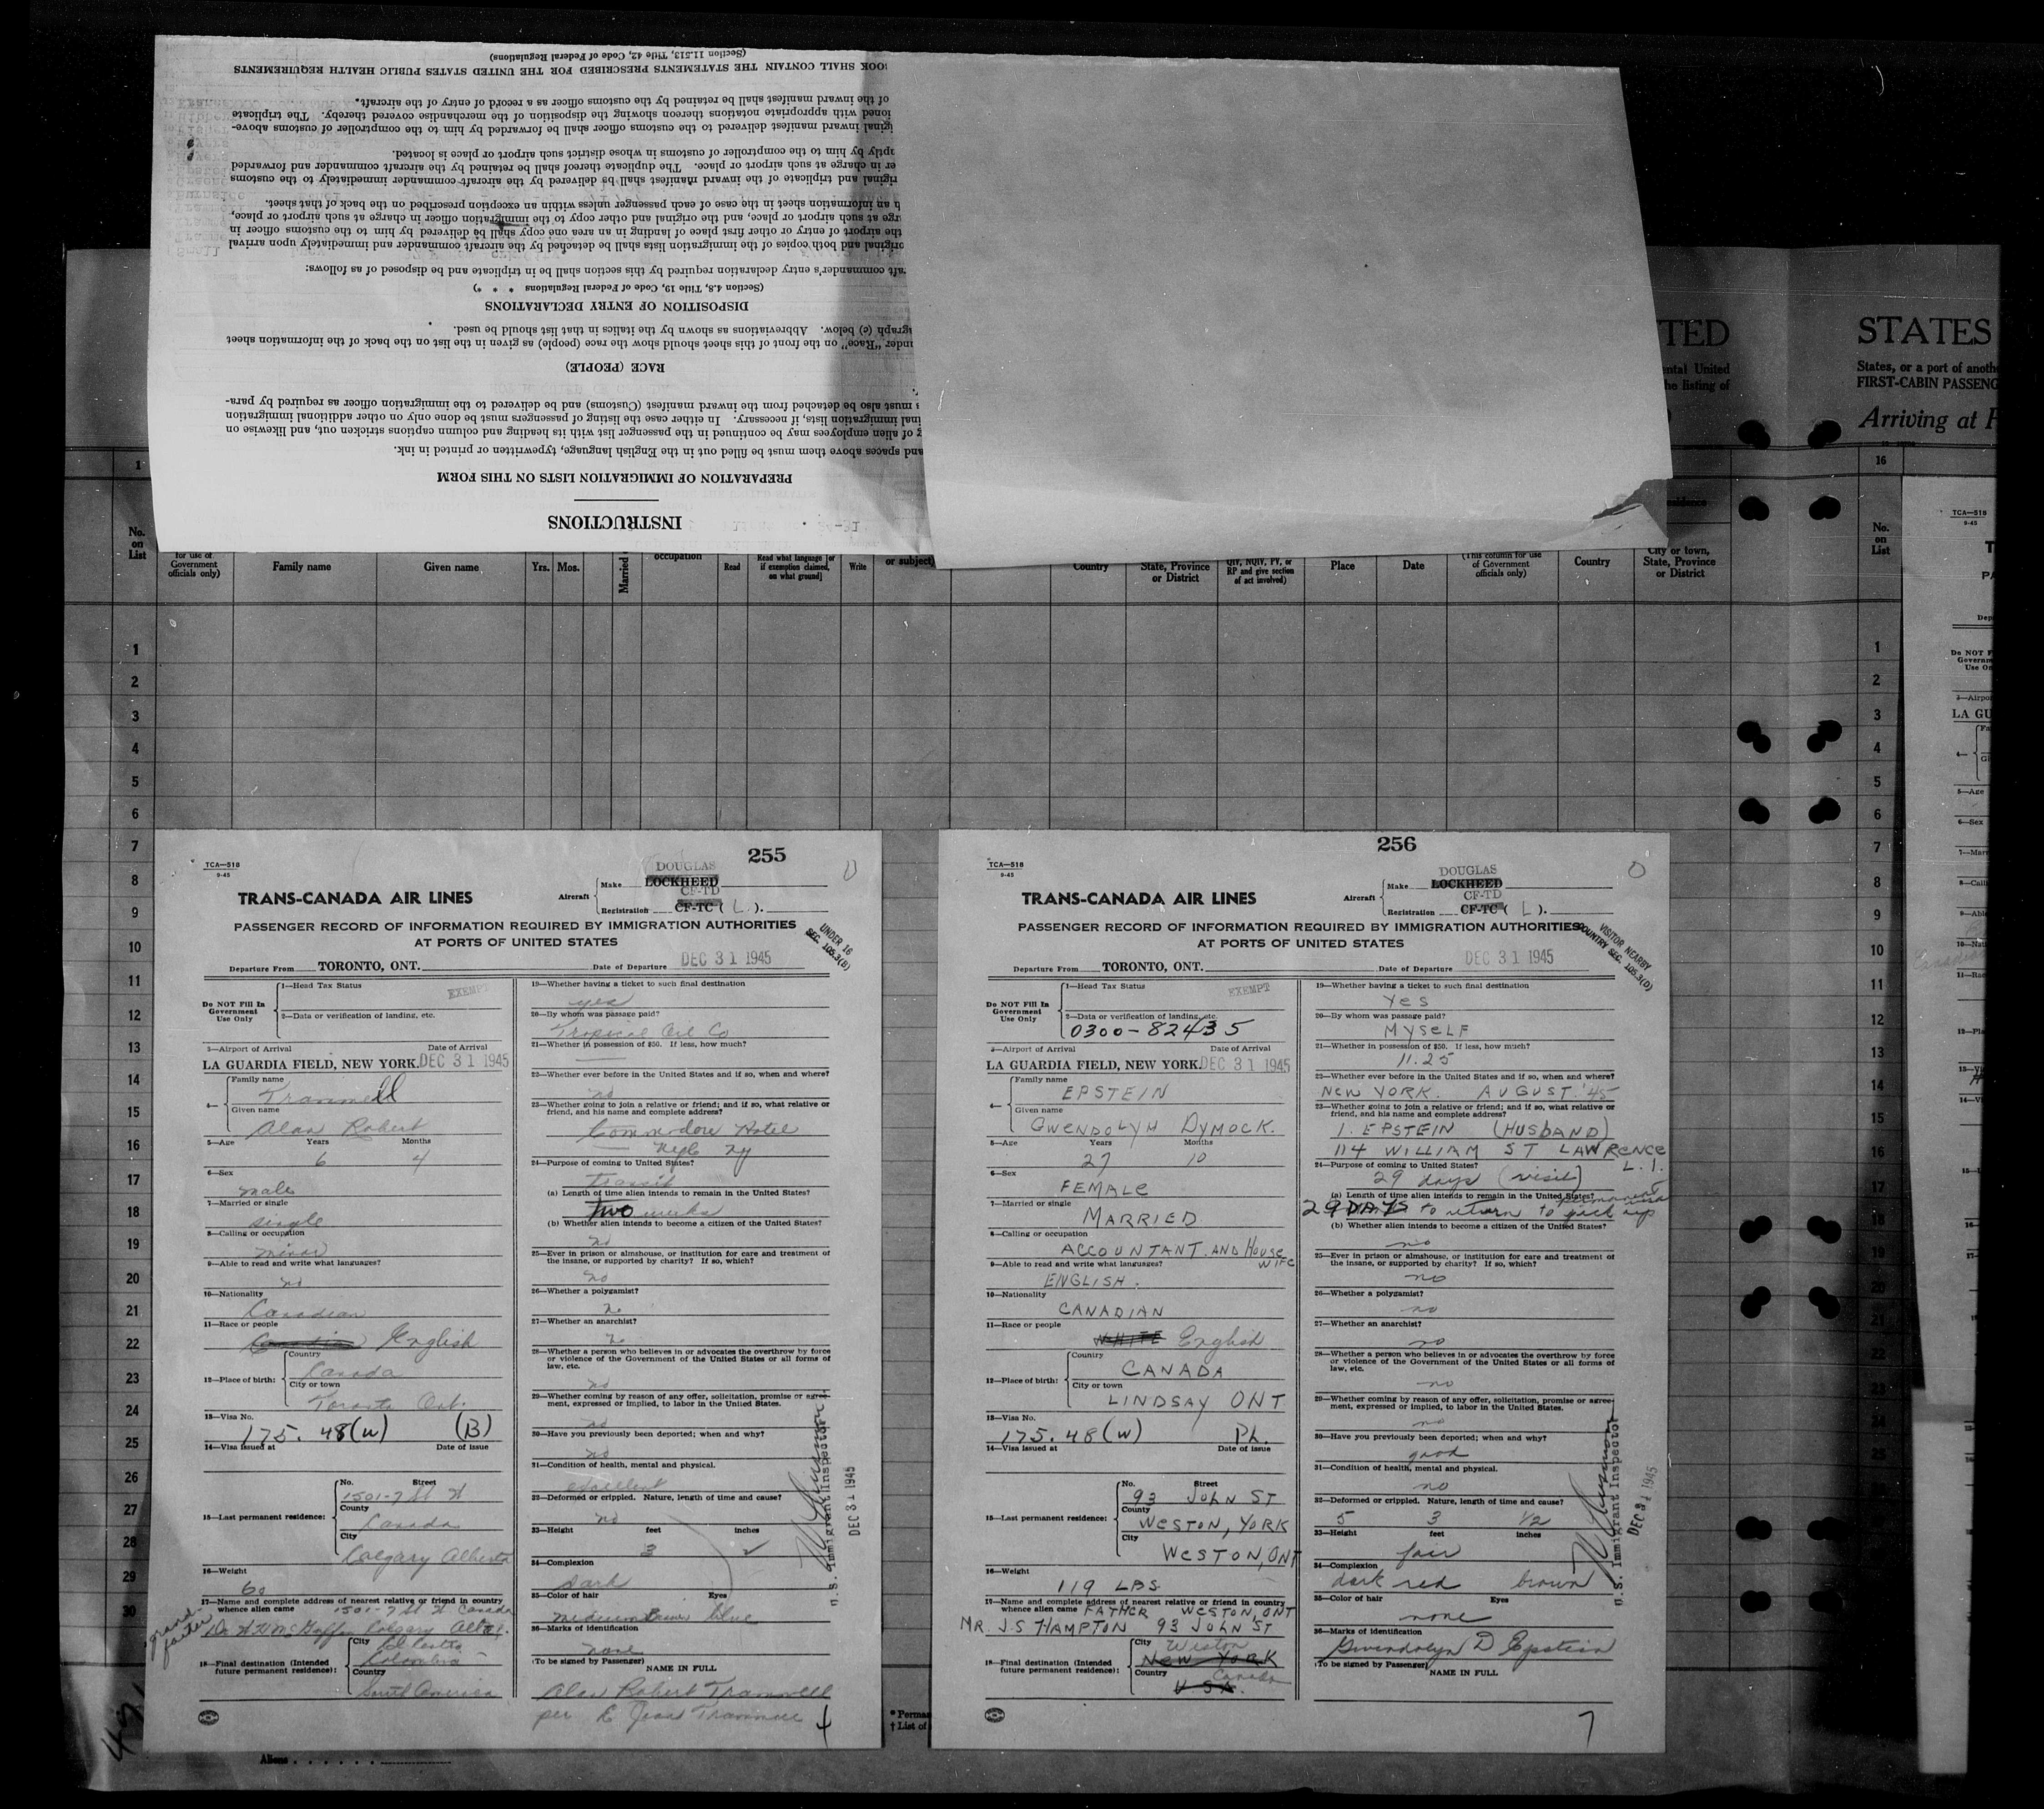 (Section 11.513, Title 42, Code of Federal Regulations)
OOK SHALL CONTAIN THE STATEMENTS PRESCRIBED FOR THE UNITED STATES PUBLIC HEALTH REQUIREMENTS
of the inward manifest shall be retained by the customs officer as a record of entry of the aircraft.
ioned with appropriate notations thereon showing the disposition of the merchandise covered thereby. The triplicate
iginal inward manifest delivered to the customs officer shall be forwarded by him to the comptroller of customs above-
aptly by him to the comptroller of customs in whose district such airport or place is located.
er in charge at such airport or place. The duplicate thereof shall be retained by the aircraft commander and forwarded
riginal and triplicate of the inward manifest shall be delivered by the aircraft commander immediately to the customs
h an information sheet in the case of each passenger unless within an exception prescribed on the back of that sheet.
urge at such airport or place, and the original and other copy to the immigration officer in charge at such airport or place,
the airport of entry or other first place of landing in an area one copy shall be delivered by him to the customs officer in
original and both copies of the immigration lists shall be detached by the aircraft commander and immediately upon arrival
raft commander's entry declaration required by this section shall be in triplicate and be disposed of as follows:
(Section 4.8, Title 19, Code of Federal Regulations * * *)
DISPOSITION OF ENTRY DECLARATIONS
agraph (e) below. Abbreviations as shown by the italics in that list should be used.
under "Race" on the front of this sheet should show the race (people) as given in the list on the back of the information sheet
RACE (PEOPLE)
s must also be detached from the inward manifest (Customs) and be delivered to the immigration officer as required by para-
inal immigration lists, if necessary. In either case the listing of passengers must be done only on other additional immigration
g of alien employees may be continued in the passenger list with its heading and column captions stricken out, and likewise on
and spaces above them must be filled out in the English language, typewritten or printed in ink.
PREPARATION OF IMMIGRATION LISTS ON THIS FORM
INSTRUCTIONS
TED
ental United
he listing of
STATES
States, or a port of anoth
FIRST-CABIN PASSENG
Arriving at
1
16
No. on List
for use of Government officials only)
Family name
Given name
Yrs.
Mos.
Married
occupation
Read
Read what language [or if exemption claimed, on what ground]
Write
or subject)
Country
State, Province or District
QIV, NQIV, PV, or RP and give section of act involved)
Place
Date
(This column for use of Government officials only)
Country
City or town, State, Province or District
No. on List
1
2
3
4
5
6
7
8
9
10
11
12
13
14
15
16
17
18
19
20
21
22
23
24
25
26
27
28
29
30
255
TCA—518
9-45
DOUGLAS
Aircraft Make LOCKHEED
CF-TD
Registration CF-TC ( L ).
TRANS-CANADA AIR LINES
PASSENGER RECORD OF INFORMATION REQUIRED BY IMMIGRATION AUTHORITIES
AT PORTS OF UNITED STATES
UNDER 16
SEC. 105.3(B)
Departure From TORONTO, ONT. Date of Departure DEC 31 1945
Do NOT Fill In Government Use Only
1—Head Tax Status EXEMPT
2—Data or verification of landing, etc.
3—Airport of Arrival Date of Arrival
LA GUARDIA FIELD, NEW YORK. DEC 31 1945
4— Family name
Trammell
Given name
Alan Robert
5—Age Years Months
6 4
6—Sex
male
7—Married or single
single
8—Calling or occupation
minor
9—Able to read and write what languages?
no
10—Nationality
Canadian
11—Race or people
Canadian English
12—Place of birth: Country
Canada
City or town
Toronto Ont.
13—Visa No.
175.48(w) (B)
14—Visa issued at Date of issue
15—Last permanent residence: No. Street
1501-7 St W
County
Canada
City
Calgary Alberta
16—Weight
60
17—Name and complete address of nearest relative or friend in country
whence alien came 1501-7 St W Canada
grand-father
Calgary Alta.
18—Final destination (Intended future permanent residence): City
Colombia
Country
South America
19—Whether having a ticket to such final destination
yes
20—By whom was passage paid?
Tropical Oil Co
21—Whether in possession of $50. If less, how much?
22—Whether ever before in the United States and if so, when and where?
no
23—Whether going to join a relative or friend; and if so, what relative or
friend, and his name and complete address?
Commodore Hotel
NY
24—Purpose of coming to United States?
Transit
(a) Length of time alien intends to remain in the United States?
two weeks
(b) Whether alien intends to become a citizen of the United States?
no
25—Ever in prison or almshouse, or institution for care and treatment of
the insane, or supported by charity? If so, which?
no
26—Whether a polygamist?
no
27—Whether an anarchist?
no
28—Whether a person who believes in or advocates the overthrow by force
or violence of the Government of the United States or all forms of
law, etc.
no
29—Whether coming by reason of any offer, solicitation, promise or agree-
ment, expressed or implied, to labor in the United States.
no
30—Have you previously been deported; when and why?
no
31—Condition of health, mental and physical.
excellent
32—Deformed or crippled. Nature, length of time and cause?
no
33—Height feet inches
3 2
34—Complexion
dark
35—Color of hair Eyes
medium Brown blue
36—Marks of identification
none
(To be signed by Passenger)
NAME IN FULL
Alan Robert Trammell
per E Jean Trammell
4
U.S. Immigrant Inspector
DEC 31 1945
256
TCA—518
9-45
DOUGLAS
Aircraft Make LOCKHEED
CF-TD
Registration CF-TC ( L ).
TRANS-CANADA AIR LINES
PASSENGER RECORD OF INFORMATION REQUIRED BY IMMIGRATION AUTHORITIES
AT PORTS OF UNITED STATES
VISITOR NEARBY
COUNTRY SEC. 105.3(D)
Departure From TORONTO, ONT. Date of Departure DEC 31 1945
Do NOT Fill In Government Use Only
1—Head Tax Status EXEMPT
2—Data or verification of landing, etc.
0300-82435
3—Airport of Arrival Date of Arrival
LA GUARDIA FIELD, NEW YORK. DEC 31 1945
4— Family name
EPSTEIN
Given name
GWENDOLYN DYMOCK.
5—Age Years Months
27 10
6—Sex
FEMALE
7—Married or single
MARRIED
8—Calling or occupation
ACCOUNTANT AND HOUSE WIFE
9—Able to read and write what languages?
ENGLISH.
10—Nationality
CANADIAN
11—Race or people
WHITE English
12—Place of birth: Country
CANADA
City or town
LINDSAY ONT
13—Visa No.
175.48(w) Ph.
14—Visa issued at Date of issue
15—Last permanent residence: No. Street
93 JOHN ST
County
WESTON, YORK
City
WESTON, ONT
16—Weight
119 LBS.
17—Name and complete address of nearest relative or friend in country
whence alien came FATHER WESTON, ONT
MR. J.S HAMPTON 93 JOHN ST
18—Final destination (Intended future permanent residence): City
Weston
NEW YORK
Country Canada
U.S.A.
19—Whether having a ticket to such final destination
Yes
20—By whom was passage paid?
MYSELF
21—Whether in possession of $50. If less, how much?
11.25
22—Whether ever before in the United States and if so, when and where?
NEW YORK. AUGUST '45
23—Whether going to join a relative or friend; and if so, what relative or
friend, and his name and complete address?
I. EPSTEIN (HUSBAND)
114 WILLIAM ST LAWRENCE L.I.
24—Purpose of coming to United States?
29 days (visit)
(a) Length of time alien intends to remain in the United States?
29 DAYS to return to pick up permanent
(b) Whether alien intends to become a citizen of the United States?
no
25—Ever in prison or almshouse, or institution for care and treatment of
the insane, or supported by charity? If so, which?
no
26—Whether a polygamist?
no
27—Whether an anarchist?
no
28—Whether a person who believes in or advocates the overthrow by force
or violence of the Government of the United States or all forms of
law, etc.
no
29—Whether coming by reason of any offer, solicitation, promise or agree-
ment, expressed or implied, to labor in the United States.
no
30—Have you previously been deported; when and why?
good
31—Condition of health, mental and physical.
no
32—Deformed or crippled. Nature, length of time and cause?
5 3 1/2
33—Height feet inches
fair
34—Complexion
dark red brown
35—Color of hair Eyes
none
36—Marks of identification
Gwendolyn D Epstein
(To be signed by Passenger)
NAME IN FULL
7
U.S. Immigrant Inspector
DEC 31 1945
* Perman
† List of
Aliens
TCA—518
9-45
LA GU